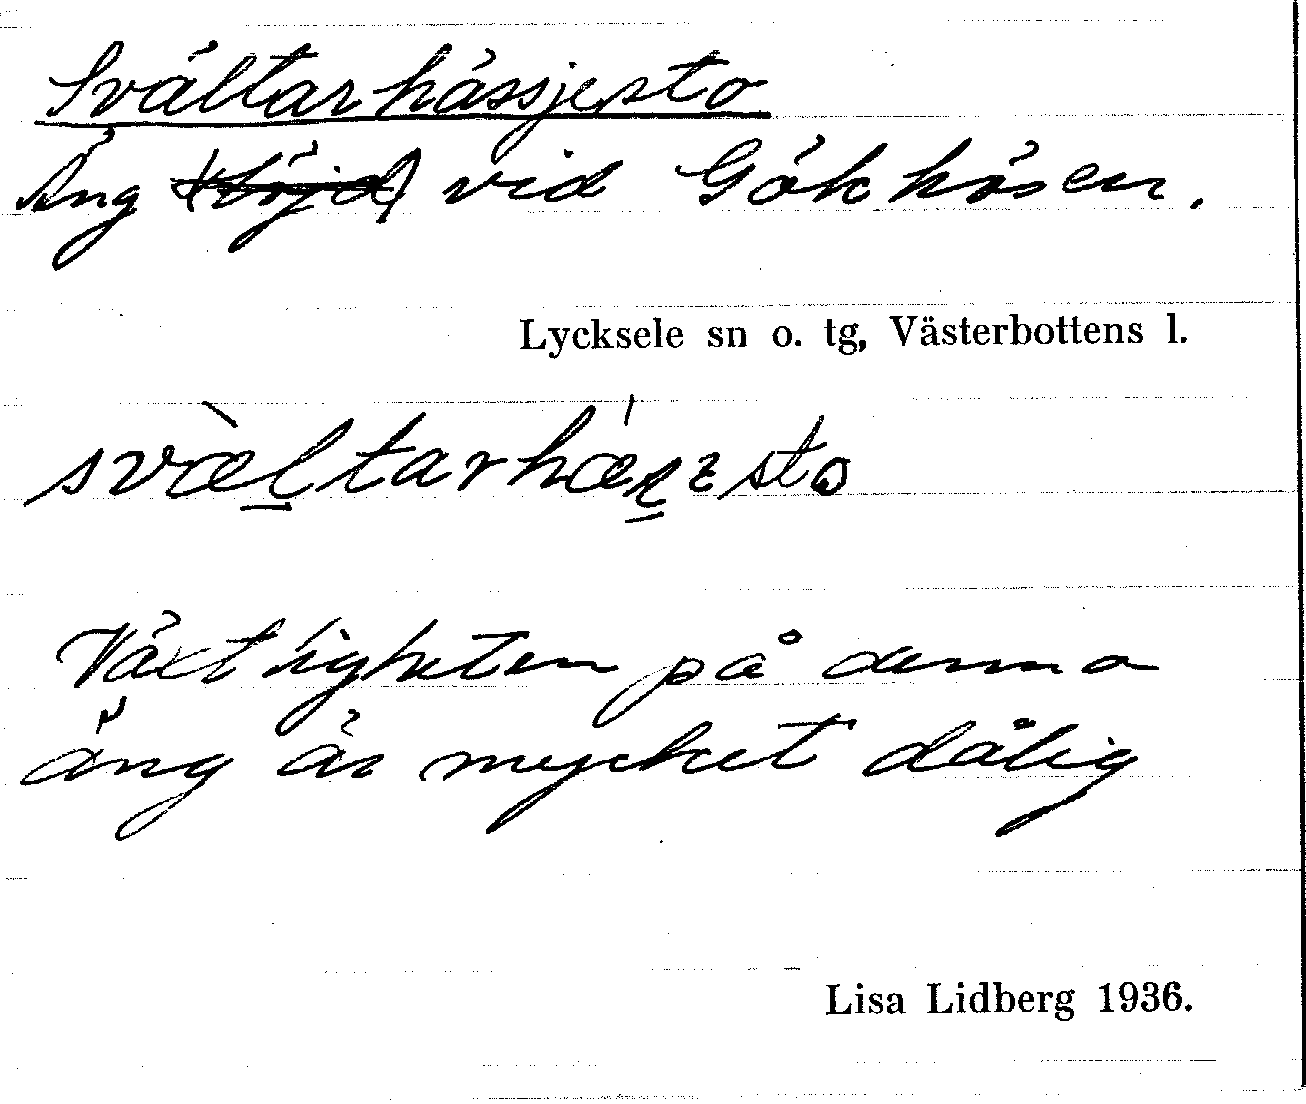 Svältarhässjesto
Äng (höjd) vid Gökhösen.
Lycksele sn o. tg, Västerbottens l.
Växtligheten på denna
äng är mycket dålig
Lisa Lidberg 1936.